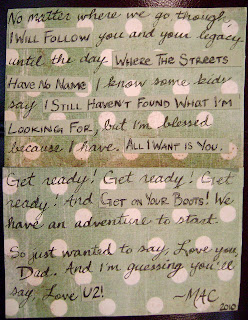 No matter where we go though,
I WILL FOLLOW you and your legacy
until the day WHERE THE STREETS
HAVE NO NAME. I know some kids
say I STILL HAVEN'T FOUND WHAT I'M
LOOKING FOR, but I'm blessed
because I have. ALL I WANT IS YOU.
Get ready! Get ready! Get
ready! And GET ON YOUR BOOTS! We
have an adventure to start.
So just wanted to say, Love you,
Dad. And I'm guessing you'll
say, Love U2!
~MAC
2010